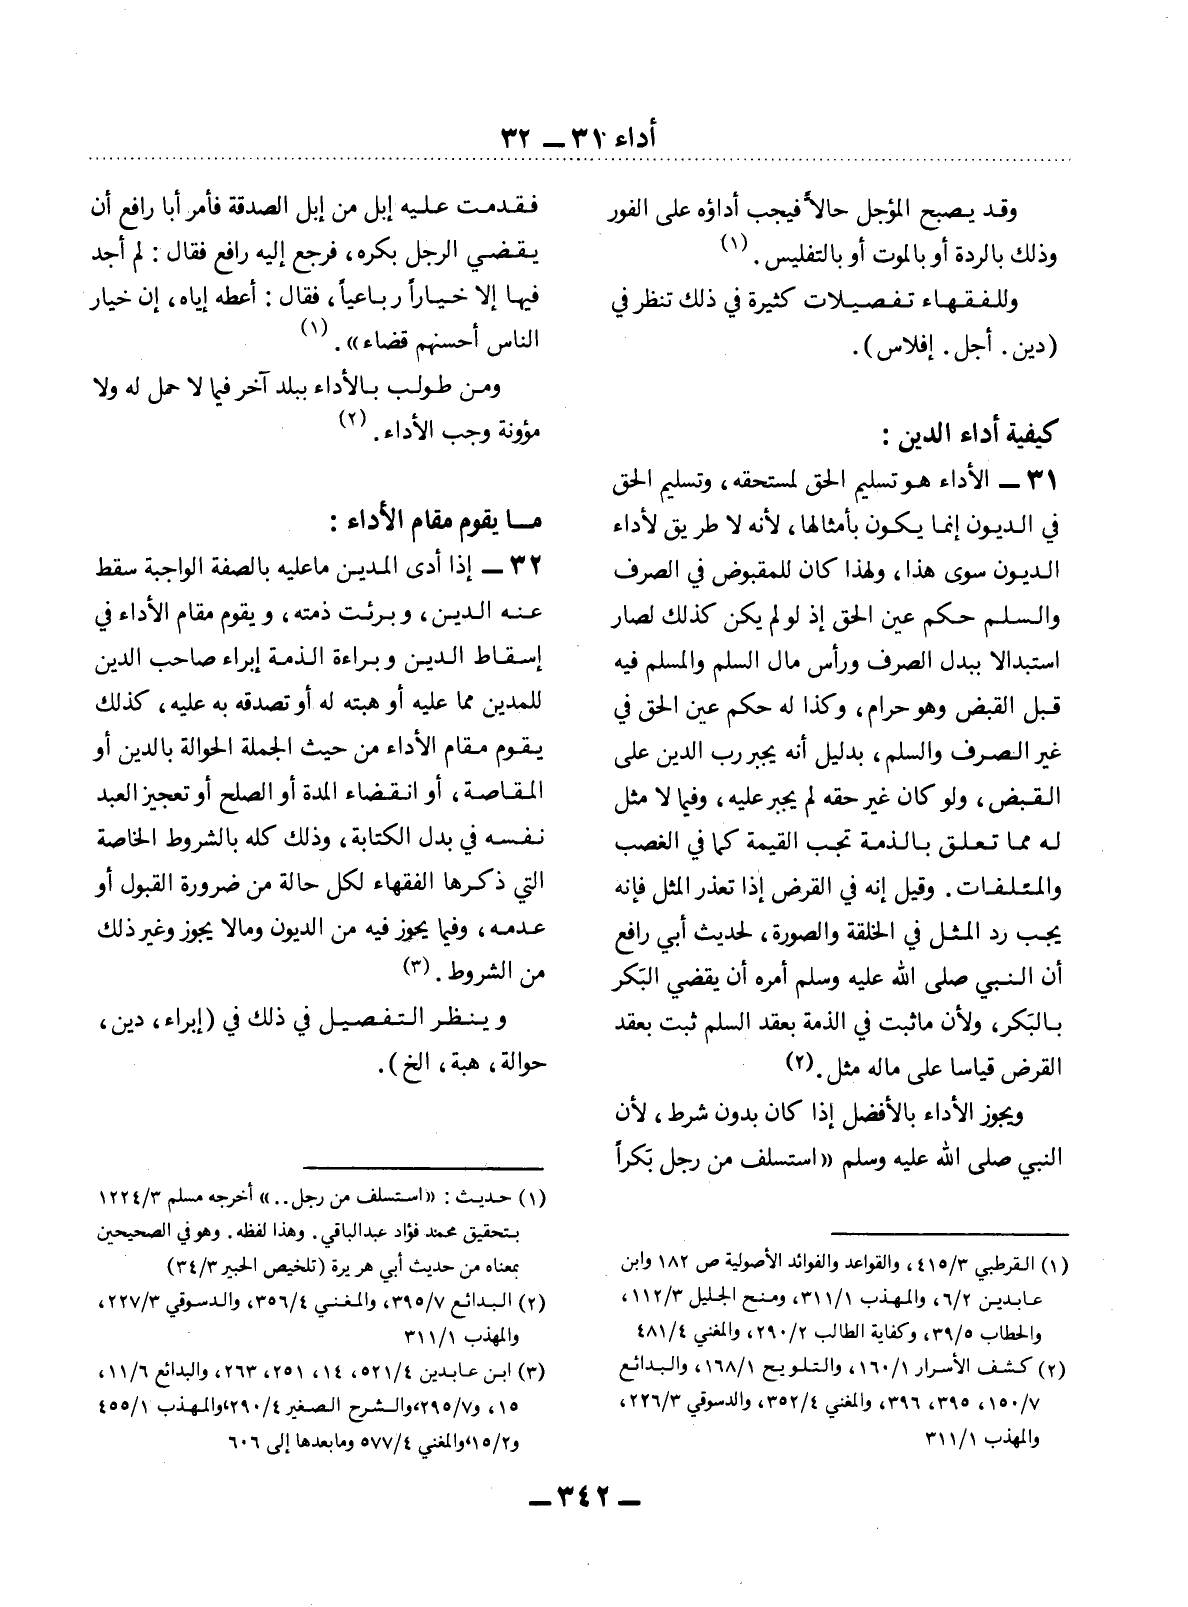 أداء ٣١ — ٣٢
وقد يصبح المؤجل حالاً فيجب أداؤه على الفور
وذلك بالردة أو بالموت أو بالتفليس. (١)
وللفقهاء تفصيلات كثيرة في ذلك تنظر في
(دين. أجل. إفلاس).
كيفية أداء الدين :
٣١ — الأداء هو تسليم الحق لمستحقه، وتسليم الحق
في الديون إنما يكون بأمثالها، لأنه لا طريق لأداء
الديون سوى هذا، ولهذا كان للمقبوض في الصرف
والسلم حكم عين الحق إذ لو لم يكن كذلك لصار
استبدالا ببدل الصرف ورأس مال السلم والمسلم فيه
قبل القبض وهو حرام، وكذا له حكم عين الحق في
غير الصرف والسلم، بدليل أنه يجبر رب الدين على
القبض، ولو كان غير حقه لم يجبر عليه، وفيما لا مثل
له مما تعلق بالذمة تجب القيمة كما في الغصب
والمتلفات. وقيل إنه في القرض إذا تعذر المثل فإنه
يجب رد المثل في الخلقة والصورة، لحديث أبي رافع
أن النبي صلى الله عليه وسلم أمره أن يقضي البَكر
بالبَكر، ولأن ماثبت في الذمة بعقد السلم ثبت بعقد
القرض قياسا على ماله مثل. (٢)
ويجوز الأداء بالأفضل إذا كان بدون شرط، لأن
النبي صلى الله عليه وسلم «استسلف من رجل بَكراً
(١) القرطبي ٤١٥/٣، والقواعد والفوائد الأصولية ص ١٨٢ وابن
عابدين ٦/٢، والمهذب ٣١١/١، ومنح الجليل ١١٢/٣،
والحطاب ٣٩/٥، وكفاية الطالب ٢٩٠/٢، والمغني ٤٨١/٤
(٢) كشف الأسرار ١٦٠/١، والتلويح ١٦٨/١، والبدائع
١٥٠/٧، ٣٩٥، ٣٩٦، والمغني ٣٥٢/٤، والدسوقي ٢٢٦/٣،
والمهذب ٣١١/١
فقدمت عليه إبل من إبل الصدقة فأمر أبا رافع أن
يقضي الرجل بكره، فرجع إليه رافع فقال : لم أجد
فيها إلا خياراً رباعياً، فقال : أعطه إياه، إن خيار
الناس أحسنهم قضاء». (١)
ومن طولب بالأداء ببلد آخر فيما لا حمل له ولا
مؤونة وجب الأداء. (٢)
ما يقوم مقام الأداء :
٣٢ — إذا أدى المدين ماعليه بالصفة الواجبة سقط
عنه الدين، وبرئت ذمته، ويقوم مقام الأداء في
إسقاط الدين وبراءة الذمة إبراء صاحب الدين
للمدين مما عليه أو هبته له أو تصدقه به عليه، كذلك
يقوم مقام الأداء من حيث الجملة الحوالة بالدين أو
المقاصة، أو انقضاء المدة أو الصلح أو تعجيز العبد
نفسه في بدل الكتابة، وذلك كله بالشروط الخاصة
التي ذكرها الفقهاء لكل حالة من ضرورة القبول أو
عدمه، وفيما يجوز فيه من الديون ومالا يجوز وغير ذلك
من الشروط. (٣)
وينظر التفصيل في ذلك في (إبراء، دين،
حوالة، هبة، الخ).
(١) حديث : «استسلف من رجل..» أخرجه مسلم ١٢٢٤/٣
بتحقيق محمد فؤاد عبدالباقي. وهذا لفظه. وهو في الصحيحين
بمعناه من حديث أبي هريرة (تلخيص الحبير ٣٤/٣)
(٢) البدائع ٣٩٥/٧، والمغني ٣٥٦/٤، والدسوقي ٢٢٧/٣،
والمهذب ٣١١/١
(٣) ابن عابدين ٥٢١/٤، ١٤، ٢٥١، ٢٦٣، والبدائع ١١/٦،
١٥، و٢٩٥/٧، والشرح الصغير ٢٩٠/٤، والمهذب ٤٥٥/١
و١٥/٢، والمغني ٥٧٧/٤ ومابعدها إلى ٦٠٦
— ٣٤٢ —